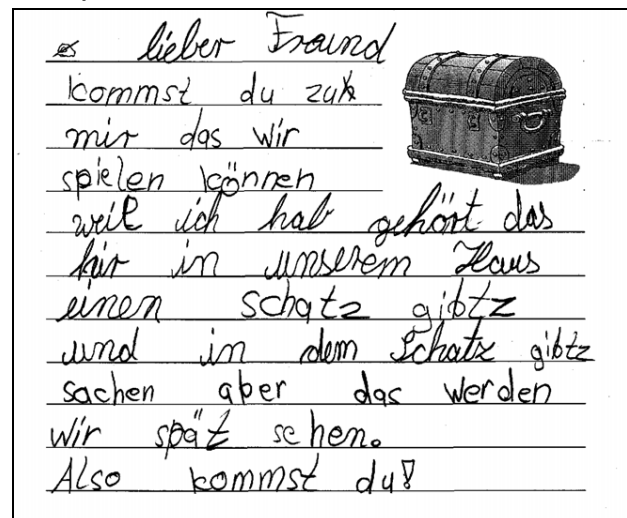 lieber Freund
kommst du zu
mir das wir
spielen können
weil ich hab gehört das
hir in unserem Haus
einen schatz gibtz
und in dem Schatz gibtz
sachen aber das werden
wir spät sehen.
Also kommst du?